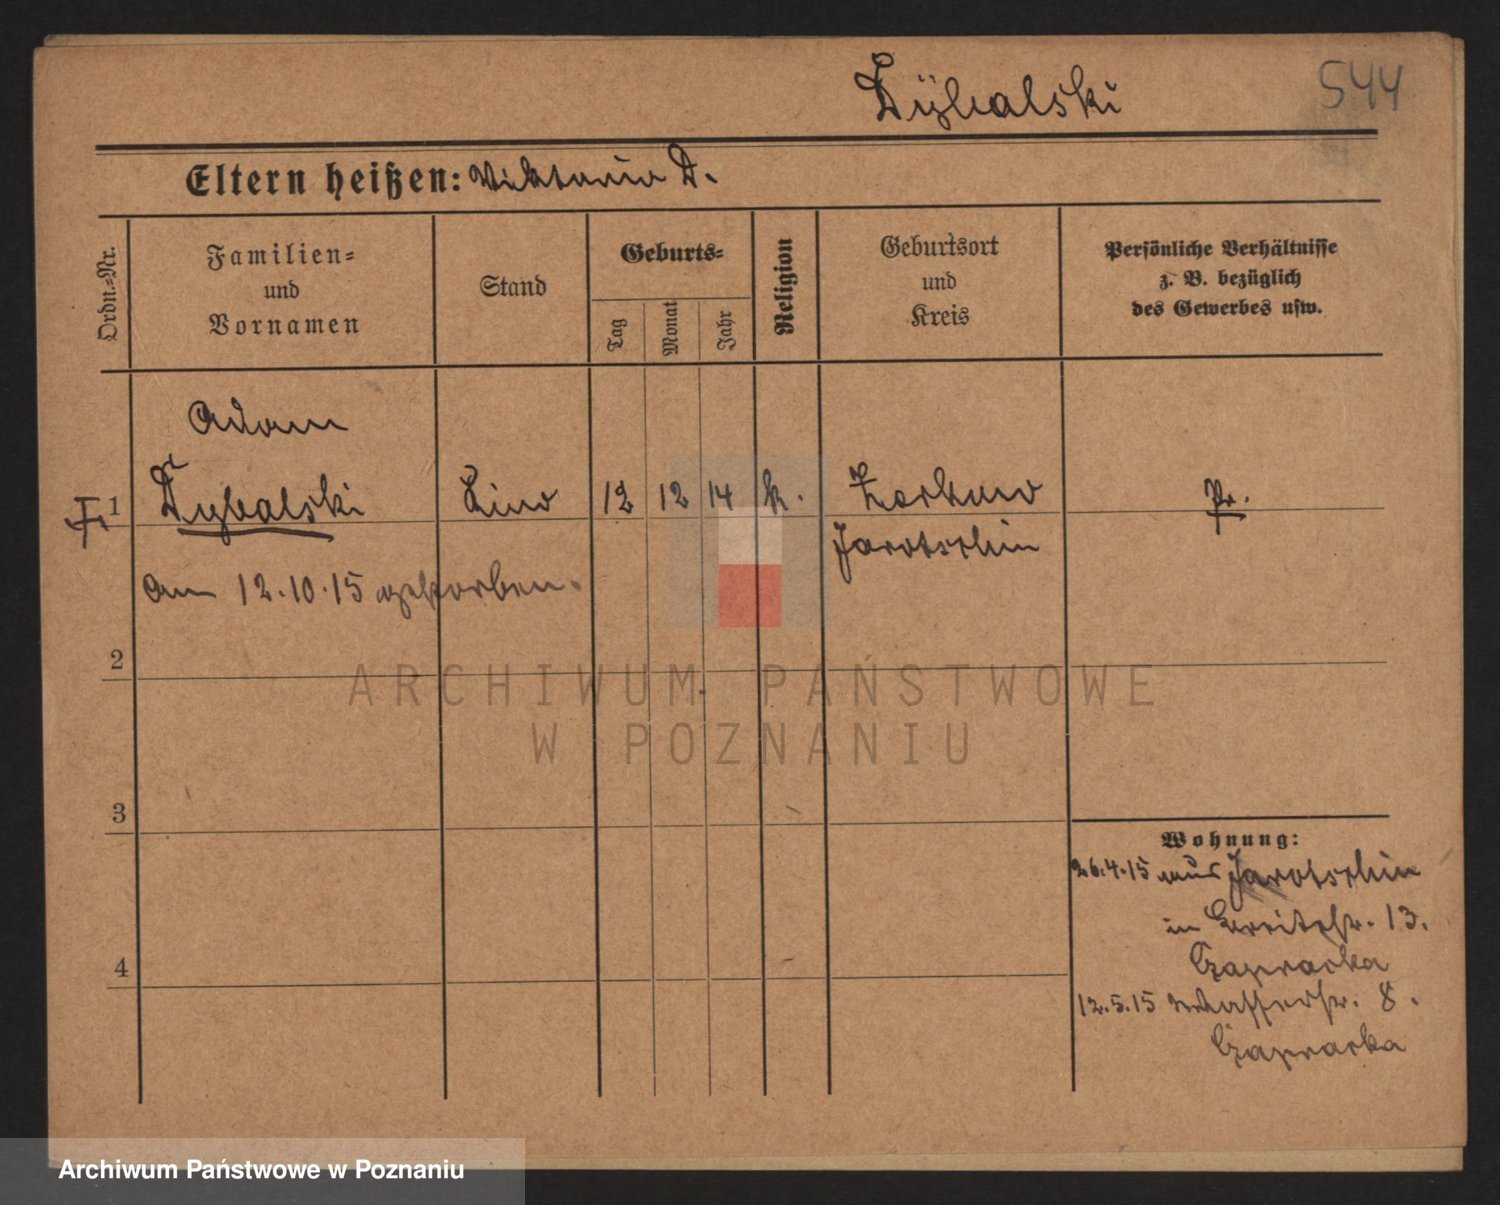 Dÿbalski
544
Eltern heißen: Viktoria D.
Ordn.-Nr.
Familien-
und
Vornamen
Stand
Geburts-
Tag
Monat
Jahr
Religion
Geburtsort
und
Kreis
Persönliche Verhältnisse
z. B. bezüglich
des Gewerbes usw.
Adam
1 Dybalski Kind 12 12 14 k. Zerkow Pr.
Jarotschin
am 12.10.15 gestorben.
2
3
4
Wohnung:
26.4.15 aus Jarotschin
in Breitestr. 13.
12.5.15 Wasserstr. 8.
ARCHIWUM PAŃSTWOWE
W POZNANIU
Archiwum Państwowe w Poznaniu